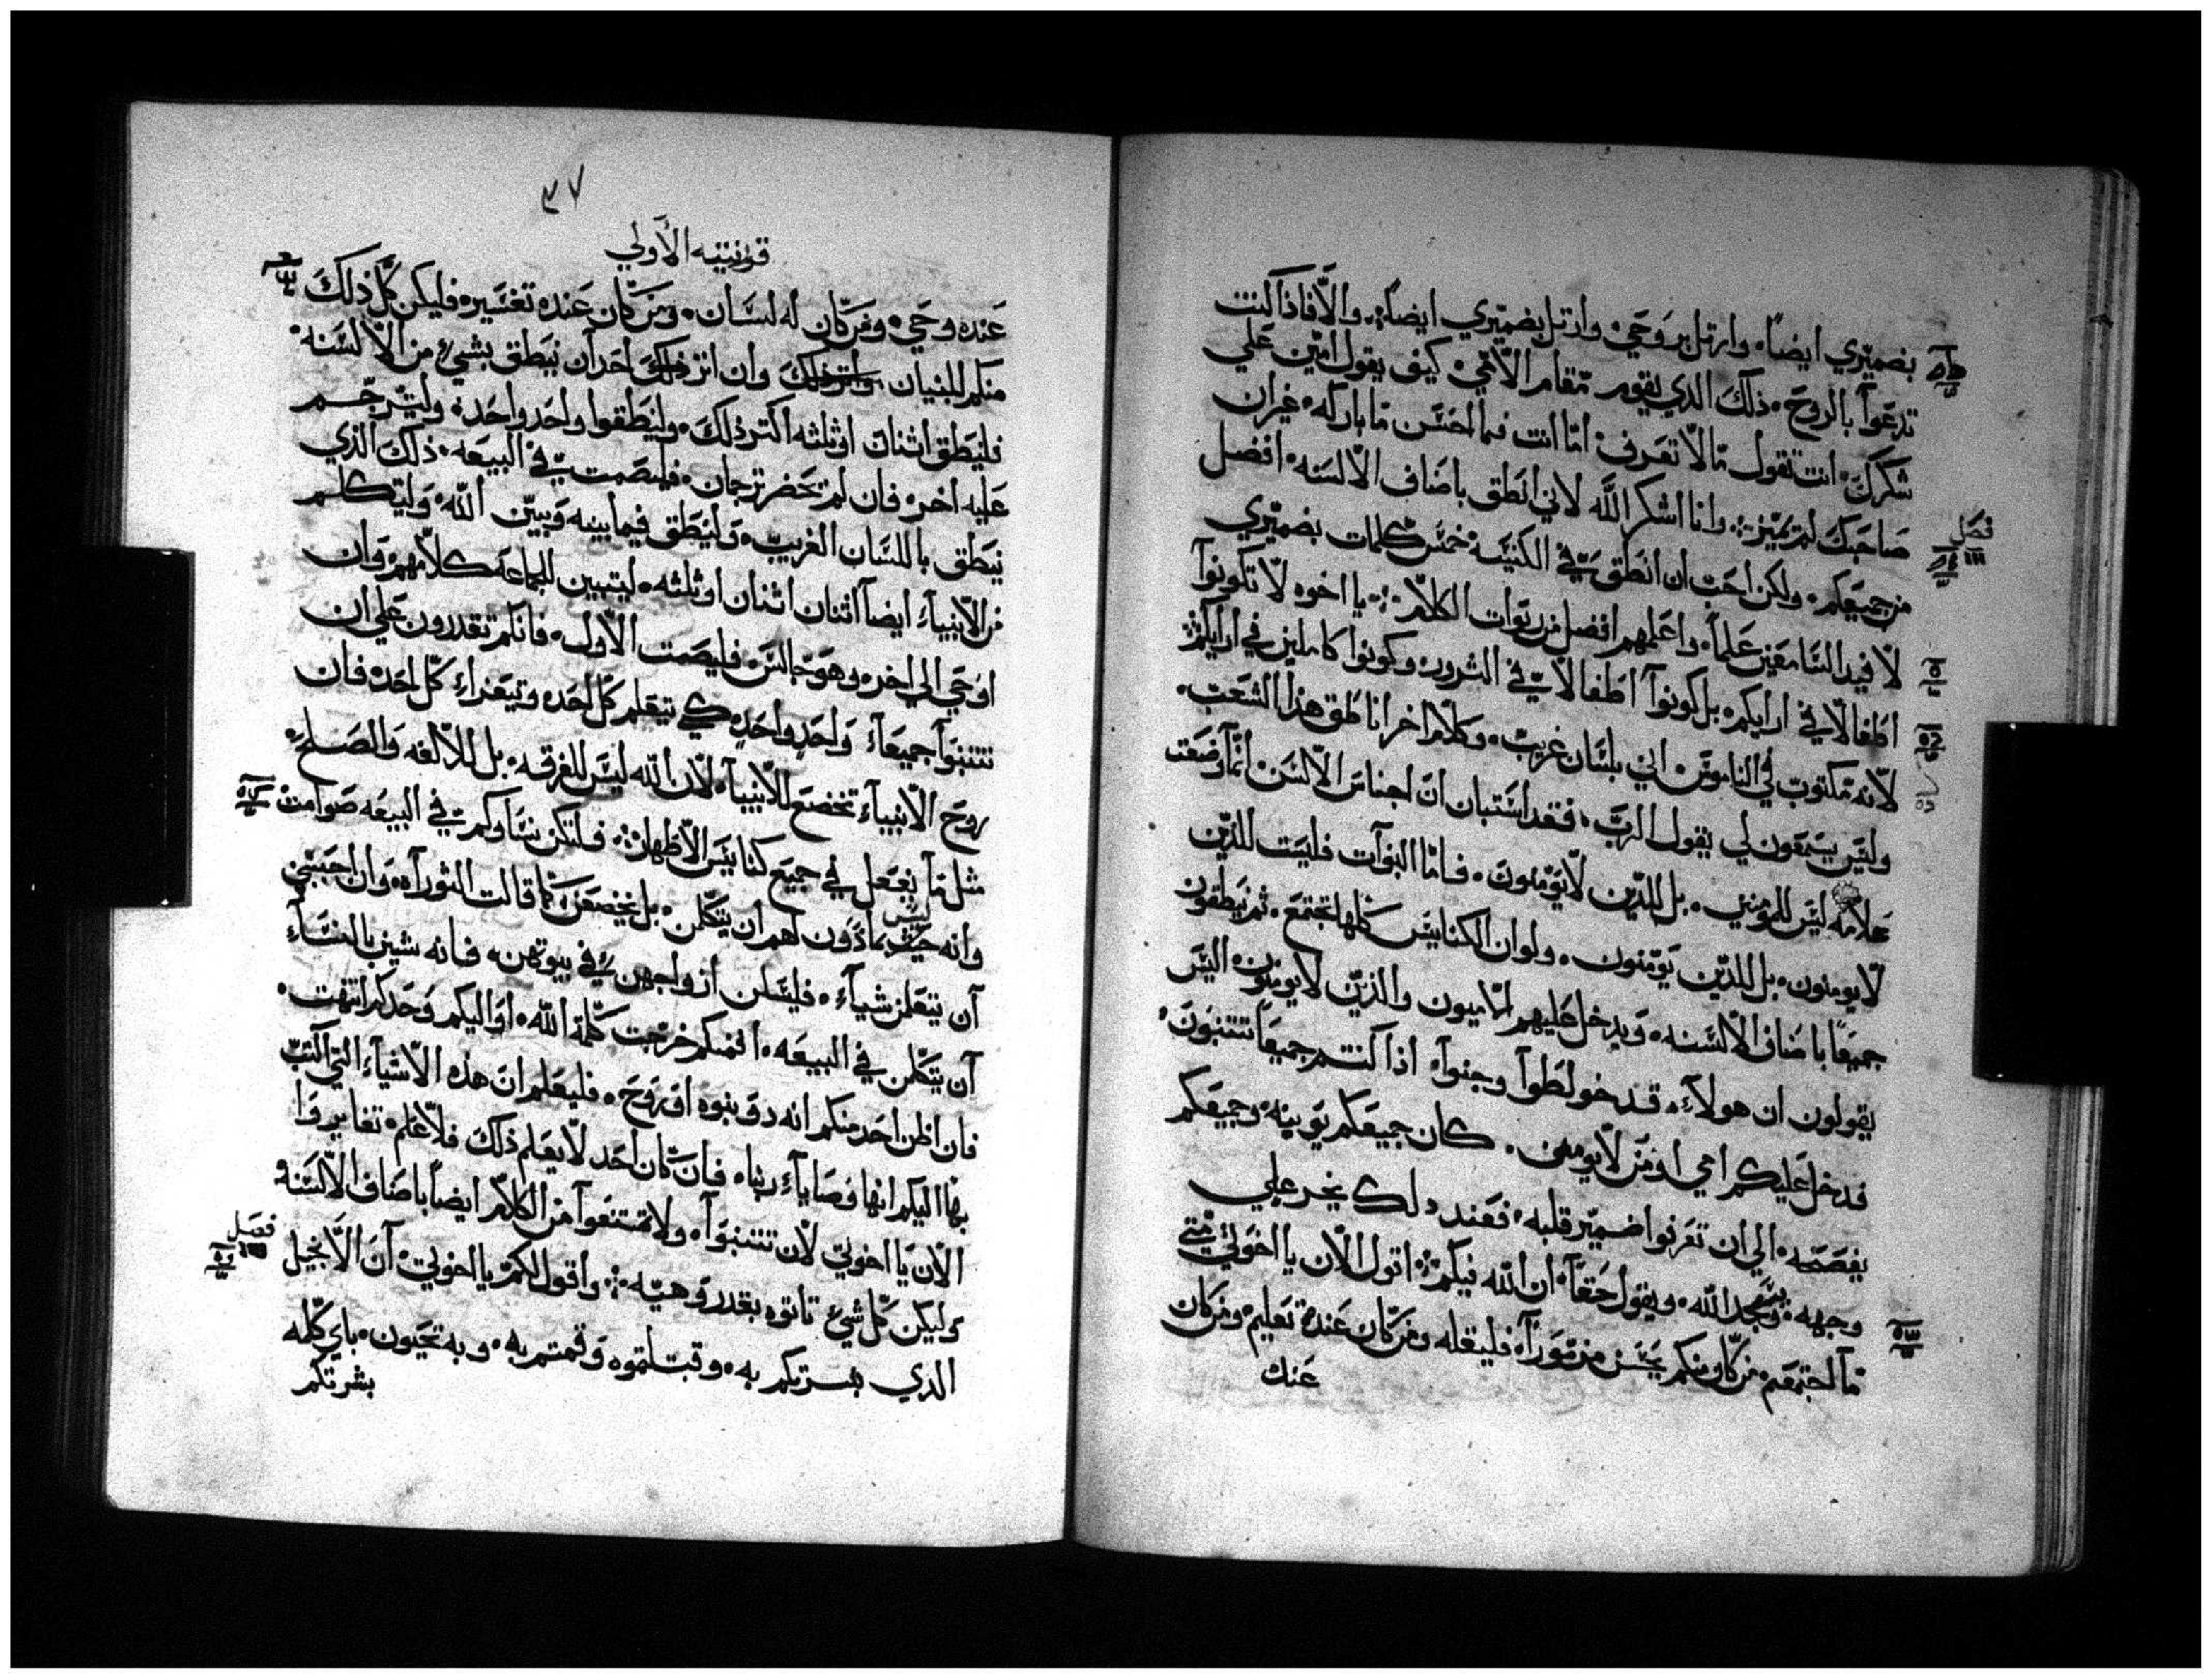 بضميري ايضاً، وارتل بروحي، وارتل بضميري ايضاً، والّا فاذا كنت
تدعوا بالروح، ذلك الذي يقوم مقام الامّي، كيف يقول امين علي
شكرك، انت تقول ما لا تعرف، امّا انت فما احسن ما بارك له، غير ان
صاحبك لم يميز، وانا اشكر الله لاني انطق باصناف الالسنه، افضل
فصل
من جميعكم، ولكن احب ان انطق في الكنيسه خمس كلمات بضميري
لافيد السامعين علماً، واعلمهم افضل من ربوات الكلام، يا اخوه لا تكونوا
اطفالاً في ارايكم، بل كونوا اطفالاً في الشرور، وكونوا كاملين في ارايكم
لانه مكتوب في الناموس، اني بلسان غريب، وكلام اخر اناطق هذا الشعب،
وليس يسمعون لي يقول الرب، فقد استبان ان اجناس الالسن، انما وضعت
علامه ليس للمومنين، بل للذين لا يومنون، فاما النبوات فليست للذين
لا يومنون، بل للذين يومنون، ولو ان الكنايس كلها تجتمع، ثم ينطقون
جميعاً باصناف الالسنه، ويدخل عليهم اميون والذين لا يومنون، اليس
يقولون ان هولاء، قد خولطوا وجنوا، اذا كنتم جميعاً تتنبون،
فدخل عليكم امي او من لا يومن، كان جميعكم يوبينه، وجميعكم
يفصحه، الي ان تعرفوا ضمير قلبه، فعند ذلك يخر علي
وجهه، ويسجد لله، ويقول حقاً، ان الله فيكم، اقول الان يا اخوتي متي
ما اجتمعتم، من كان منكم يحسن مزموراً، فليقله ومن كان عنده تعليم، ومن كان
عنك
٣٧
قرنتيه الأولي
عنده وحي، ومن كان له لسان، ومن كان عنده تفسير، فليكن كل ذلك
منكم للبنيان وان اثر ذلك احد ان ينطق بشيء من الالسنه،
فلينطق اثنان او ثلثه اكثر ذلك، ولينطقوا واحد واحد، وليترجم
عليه اخر، فان لم يحضر ترجمان، فليصمت في البيعه، ذلك الذي
ينطق باللسان الغريب، ولينطق فيما بينه وبين الله، وليتكلم
من الانبياء ايضاً اثنان اثنان او ثلثه، ليتبين الجماعه كلامهم، وان
اوحي الي اخر، وهو جالس، فليصمت الاول، فانكم تقدرون علي ان
تتنبوا جميعاً، واحد واحد، كي يتعلم كل احد، ويتعزا، كل احد، فان
روح الانبياء تخضع للانبياء، لان الله ليس للفرقه، بل للالفه والصلح،
مثل ما يفعل في جميع كنايس الاطهار، فلتكن نساوكم في البيعه صوامت
وانه ليس بماذون لهم ان يتكلمن، بل يخضعن، كما قالت التوراه، وان احببن
ان يتعلمن شياء، فليسلن ازواجهن في بيوتهن، فانه شين بالنساء
ان يتكلمن في البيعه، افمنكم خرجت كلمة الله، او اليكم وحدكم انتهت،
فان اظن احد منكم انه ذو بنوه او روح، فليعلم ان هذه الاشياء التي اكتب
بها اليكم انها وصايا ربنا، فان كان احد لا يعلم ذلك فلا علم، تغايروا
الان يا اخوتي لان تتنبوا، ولا تمتنعوا من الكلام ايضاً باصناف الالسنه
فصل
وليكن كل شيء تاتوه بقدر وهيه، واقول لكم يا اخوتي، ان الانجيل
الدي بشرتكم به، وقبلتموه وقمتم به، وبه تحيون، باي كلمه
بشرتكم